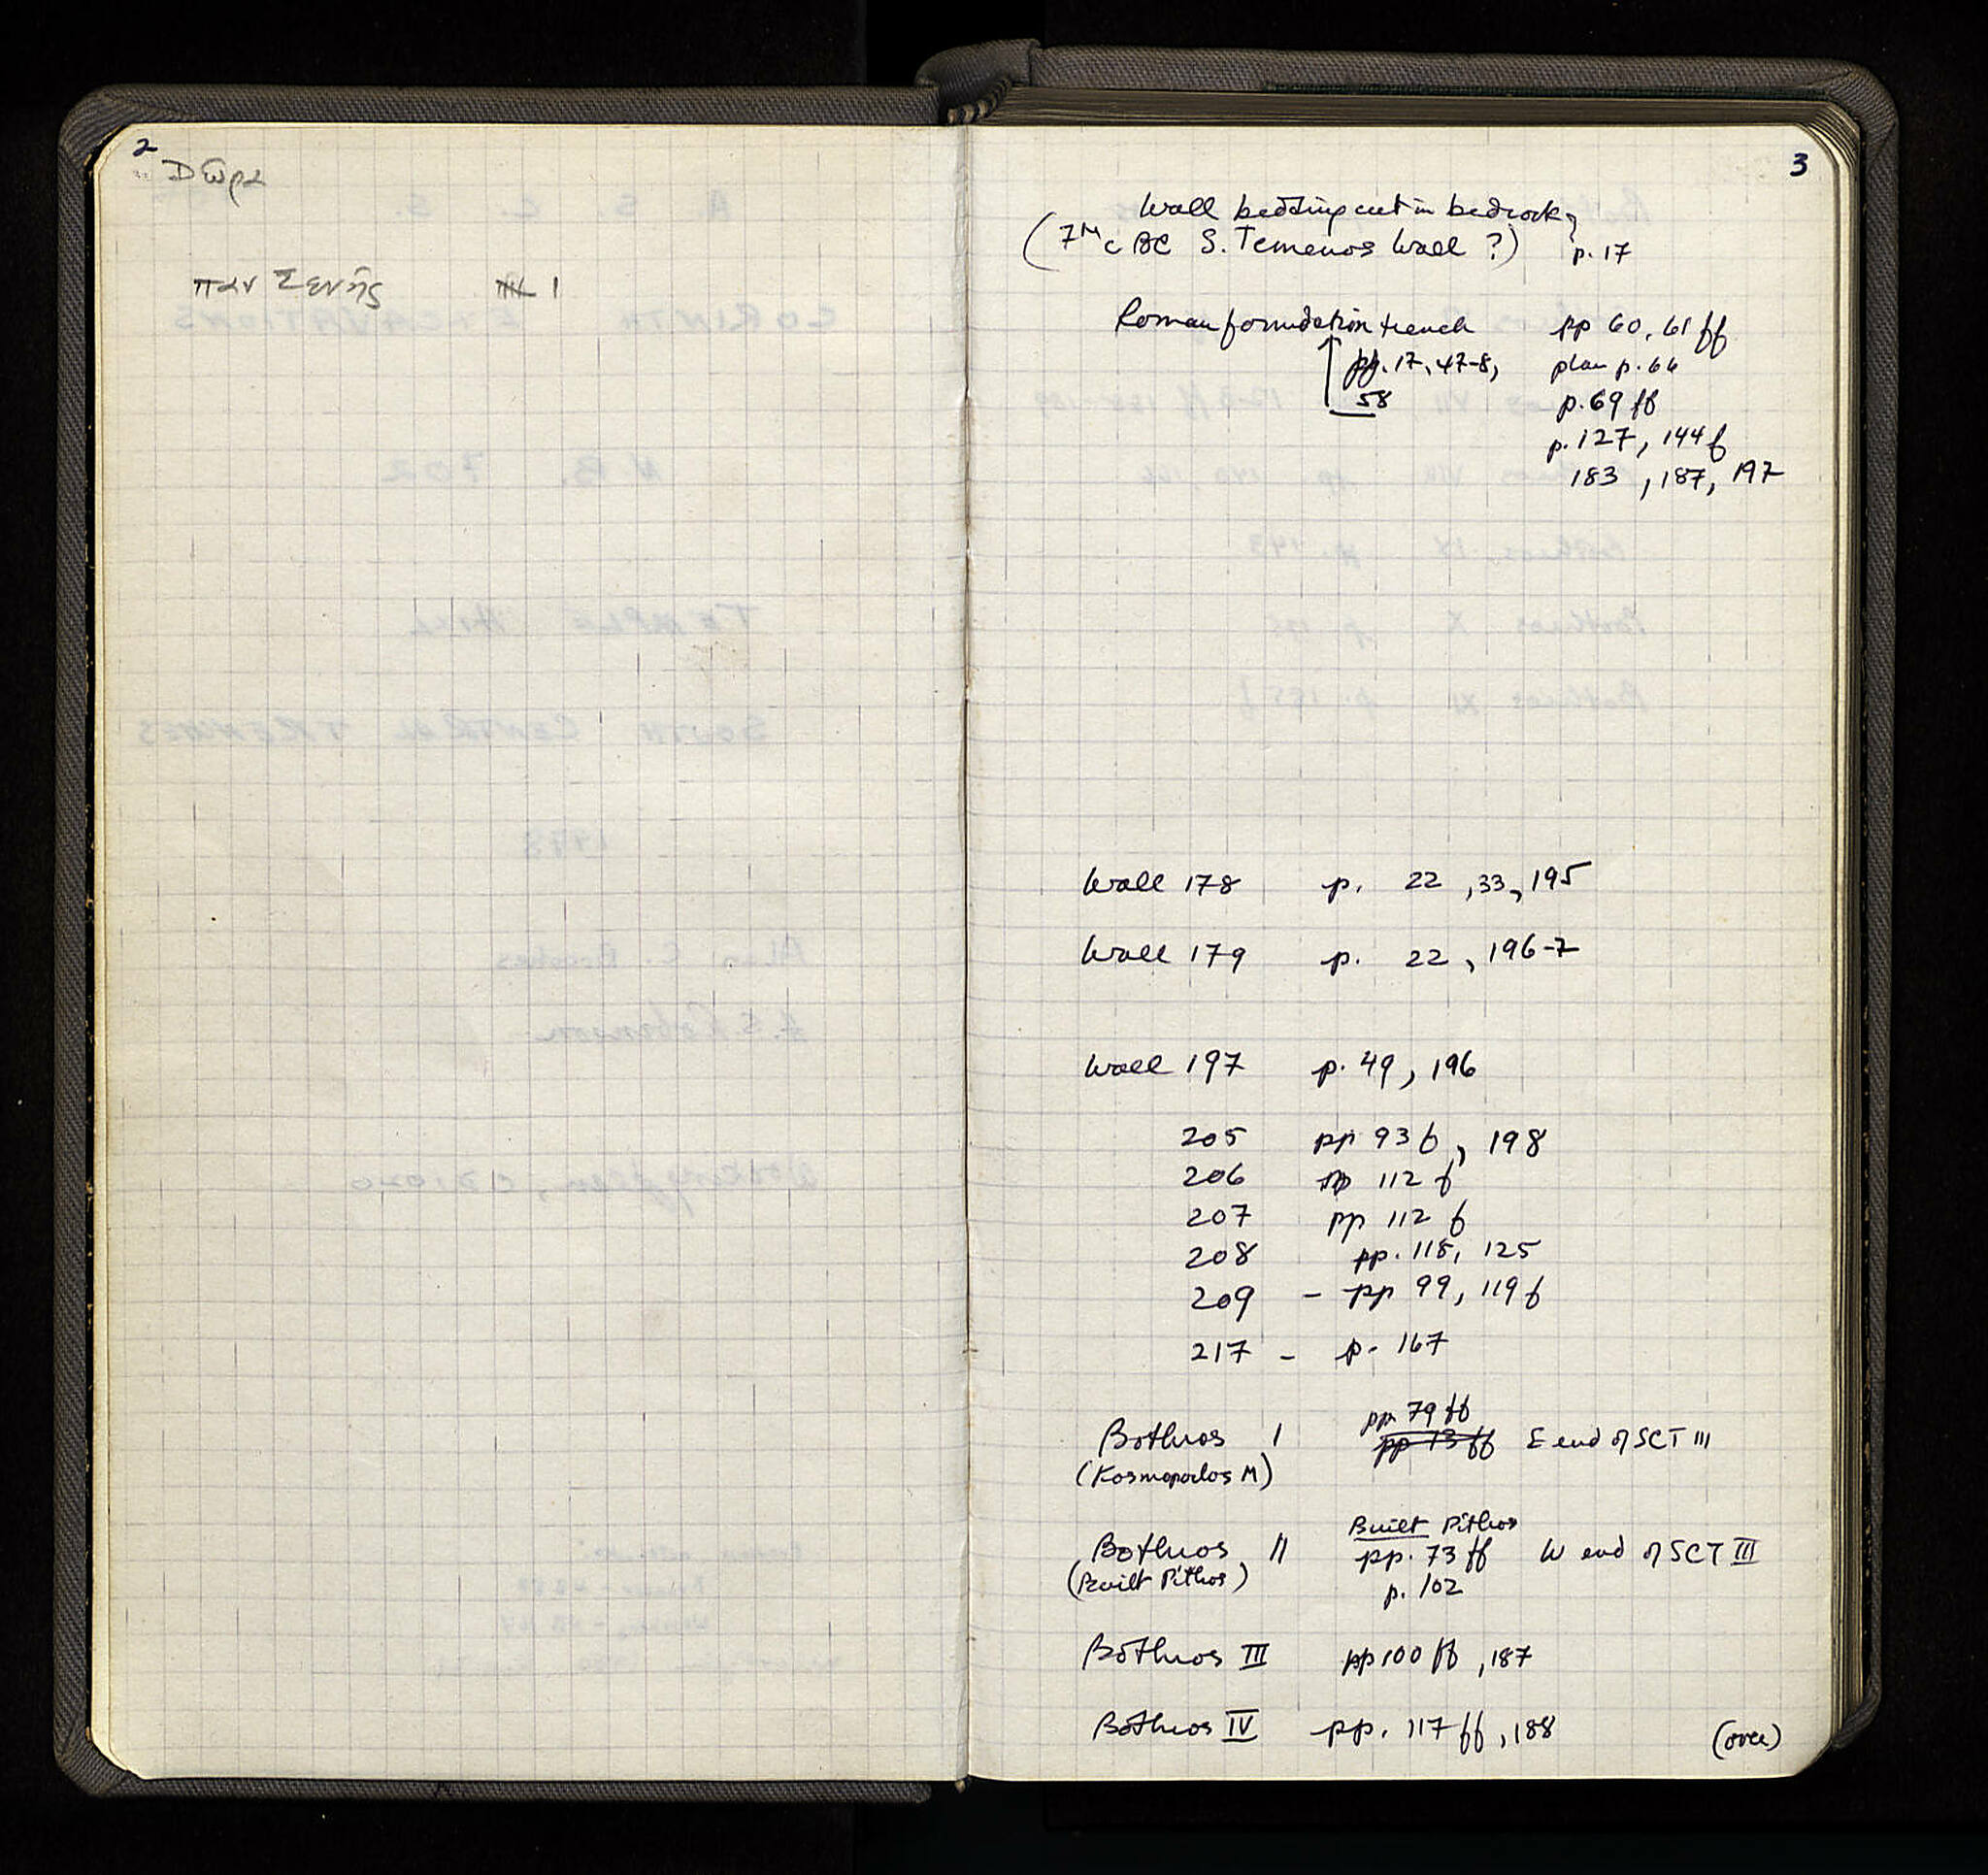 2
Dῶρα
παν Σενής 1
3
Wall bedding cut in bedrock,
(7th c BC S. Temenos Wall ?) p. 17
Roman foundation trench pp 60, 61 ff
pp. 17, 47-8, plan p. 66
58 p. 69 ff
p. 127, 144 f
183, 187, 197
Wall 178 p. 22, 33, 195
Wall 179 p. 22, 196-7
Wall 197 p. 49, 196
205 pp 93 f, 198
206 pp 112 f
207 pp 112 f
208 pp. 118, 125
209 - pp 99, 119 f
217 - p. 167
pp. 79 ff
Bothros I pp 73 ff E end of SCT III
(Kosmopoulos M)
Built Pithos
Bothros II pp. 73 ff W end of SCT III
(Built Pithos) p. 102
Bothros III pp 100 ff, 187
Bothros IV pp. 117 ff, 188 (over)